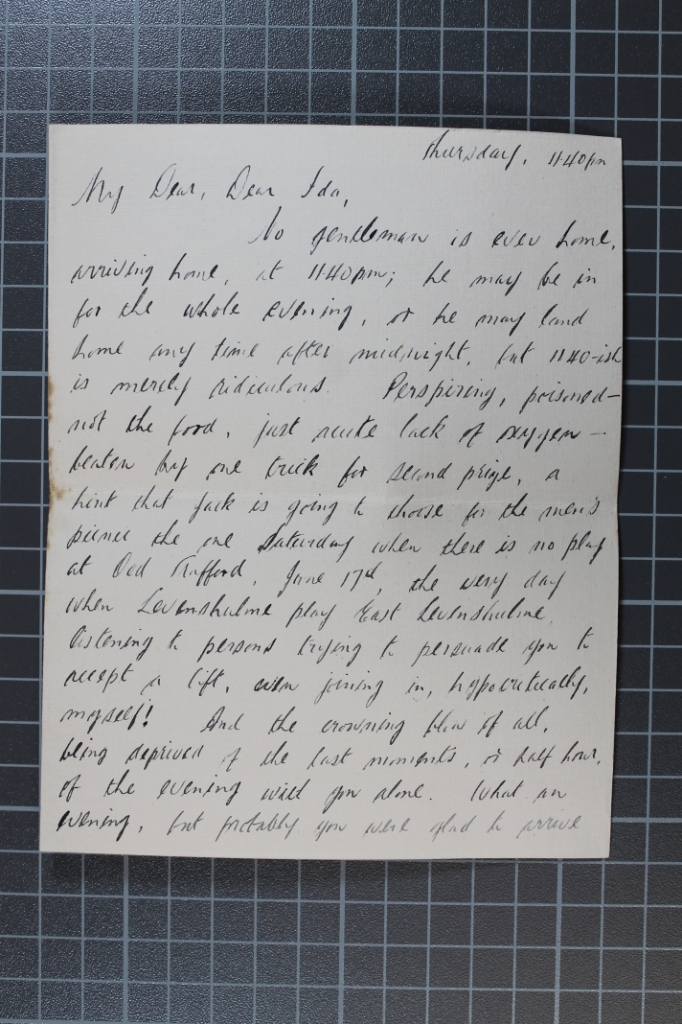 Thursday, 11.40pm
My Dear, Dear Ida,
No gentleman is ever home,
arriving home, at 11.40pm; he may be in
for the whole evening, or he may land
home any time after midnight, but 11.40-ish
is merely ridiculous. Perspiring, poisoned—
not the food, just acute lack of oxygen—
beaten by one trick for second prize, a
hint that Jack is going to choose for the men's
picnic the one Saturday when there is no play
at Old Trafford, June 17th, the very day
when Levenshulme play East Levenshulme,
listening to persons trying to persuade you to
accept a lift, even joining in, hypocritically,
myself! And the crowning blow of all,
being deprived of the last moments, or half hour,
of the evening with you alone. What an
evening, but probably you were glad to arrive